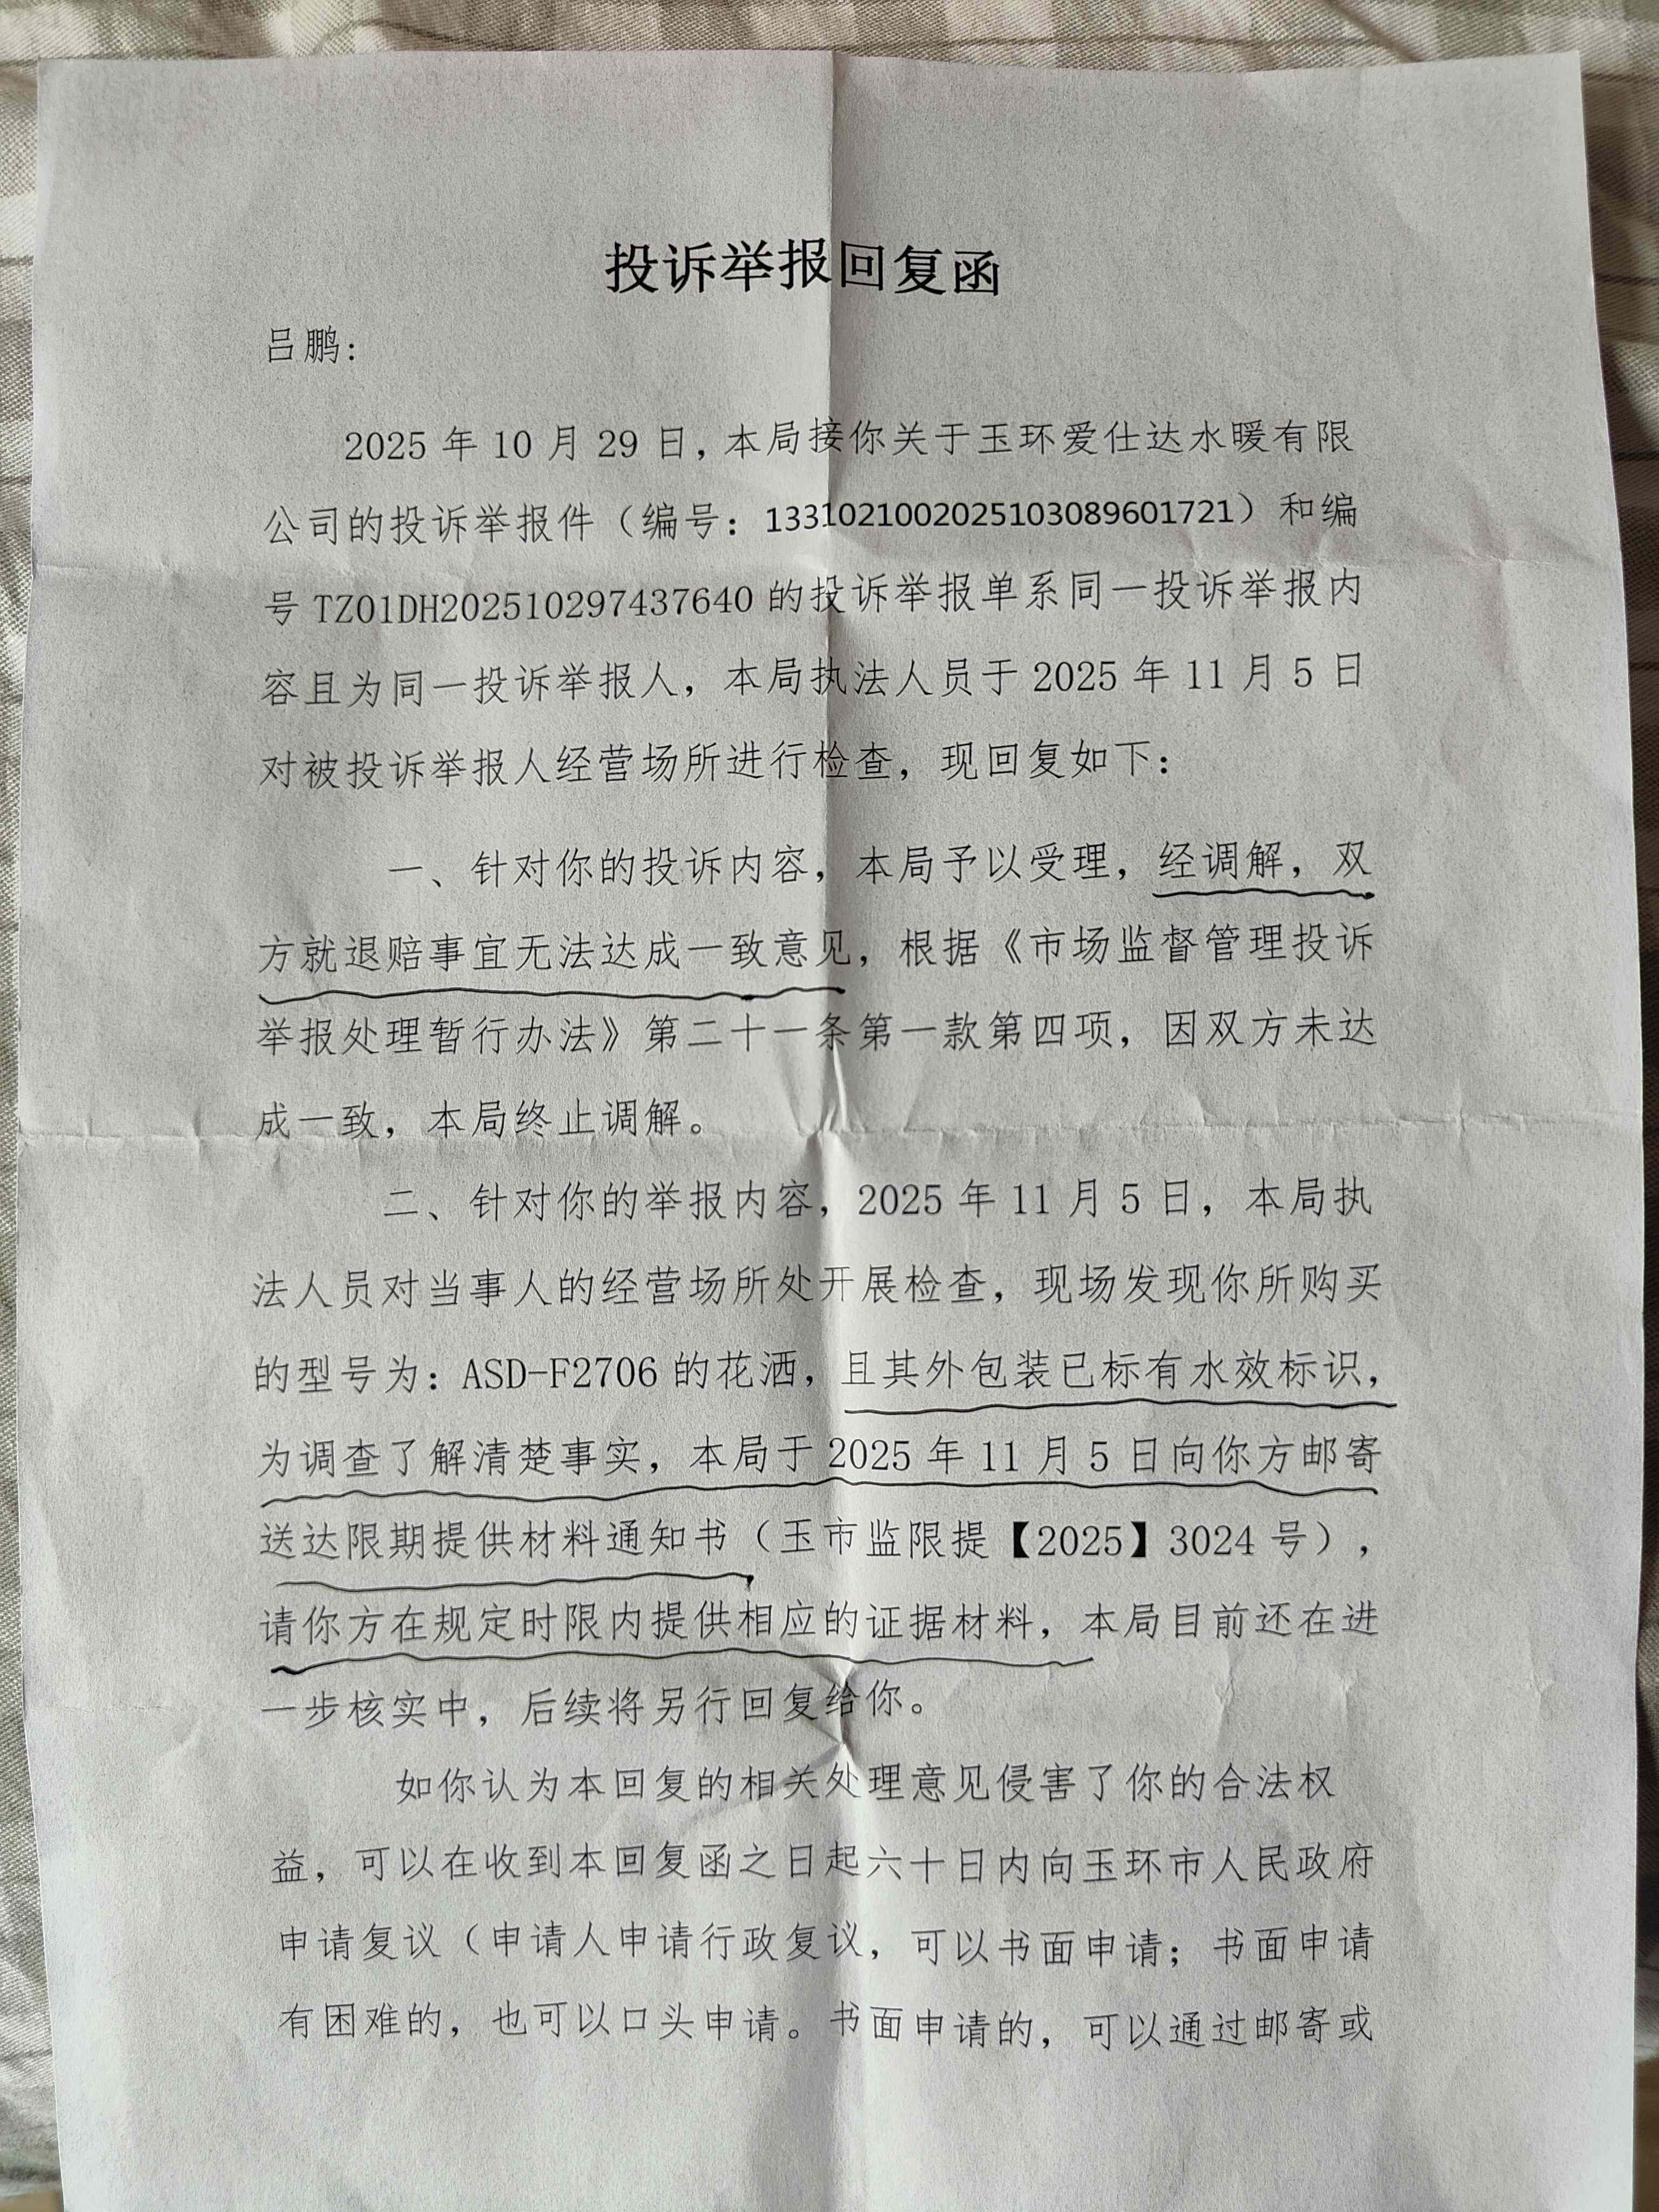 投诉举报回复函
吕鹏：
2025年10月29日，本局接你关于玉环爱仕达水暖有限
公司的投诉举报件（编号：1331021002025103089601721）和编
号TZ01DH202510297437640的投诉举报单系同一投诉举报内
容且为同一投诉举报人，本局执法人员于2025年11月5日
对被投诉举报人经营场所进行检查，现回复如下：
一、针对你的投诉内容，本局予以受理，经调解，双
方就退赔事宜无法达成一致意见，根据《市场监督管理投诉
举报处理暂行办法》第二十一条第一款第四项，因双方未达
成一致，本局终止调解。
二、针对你的举报内容，2025年11月5日，本局执
法人员对当事人的经营场所处开展检查，现场发现你所购买
的型号为：ASD-F2706的花洒，且其外包装已标有水效标识，
为调查了解清楚事实，本局于2025年11月5日向你方邮寄
送达限期提供材料通知书（玉市监限提【2025】3024号），
请你方在规定时限内提供相应的证据材料，本局目前还在进
一步核实中，后续将另行回复给你。
如你认为本回复的相关处理意见侵害了你的合法权
益，可以在收到本回复函之日起六十日内向玉环市人民政府
申请复议（申请人申请行政复议，可以书面申请；书面申请
有困难的，也可以口头申请。书面申请的，可以通过邮寄或